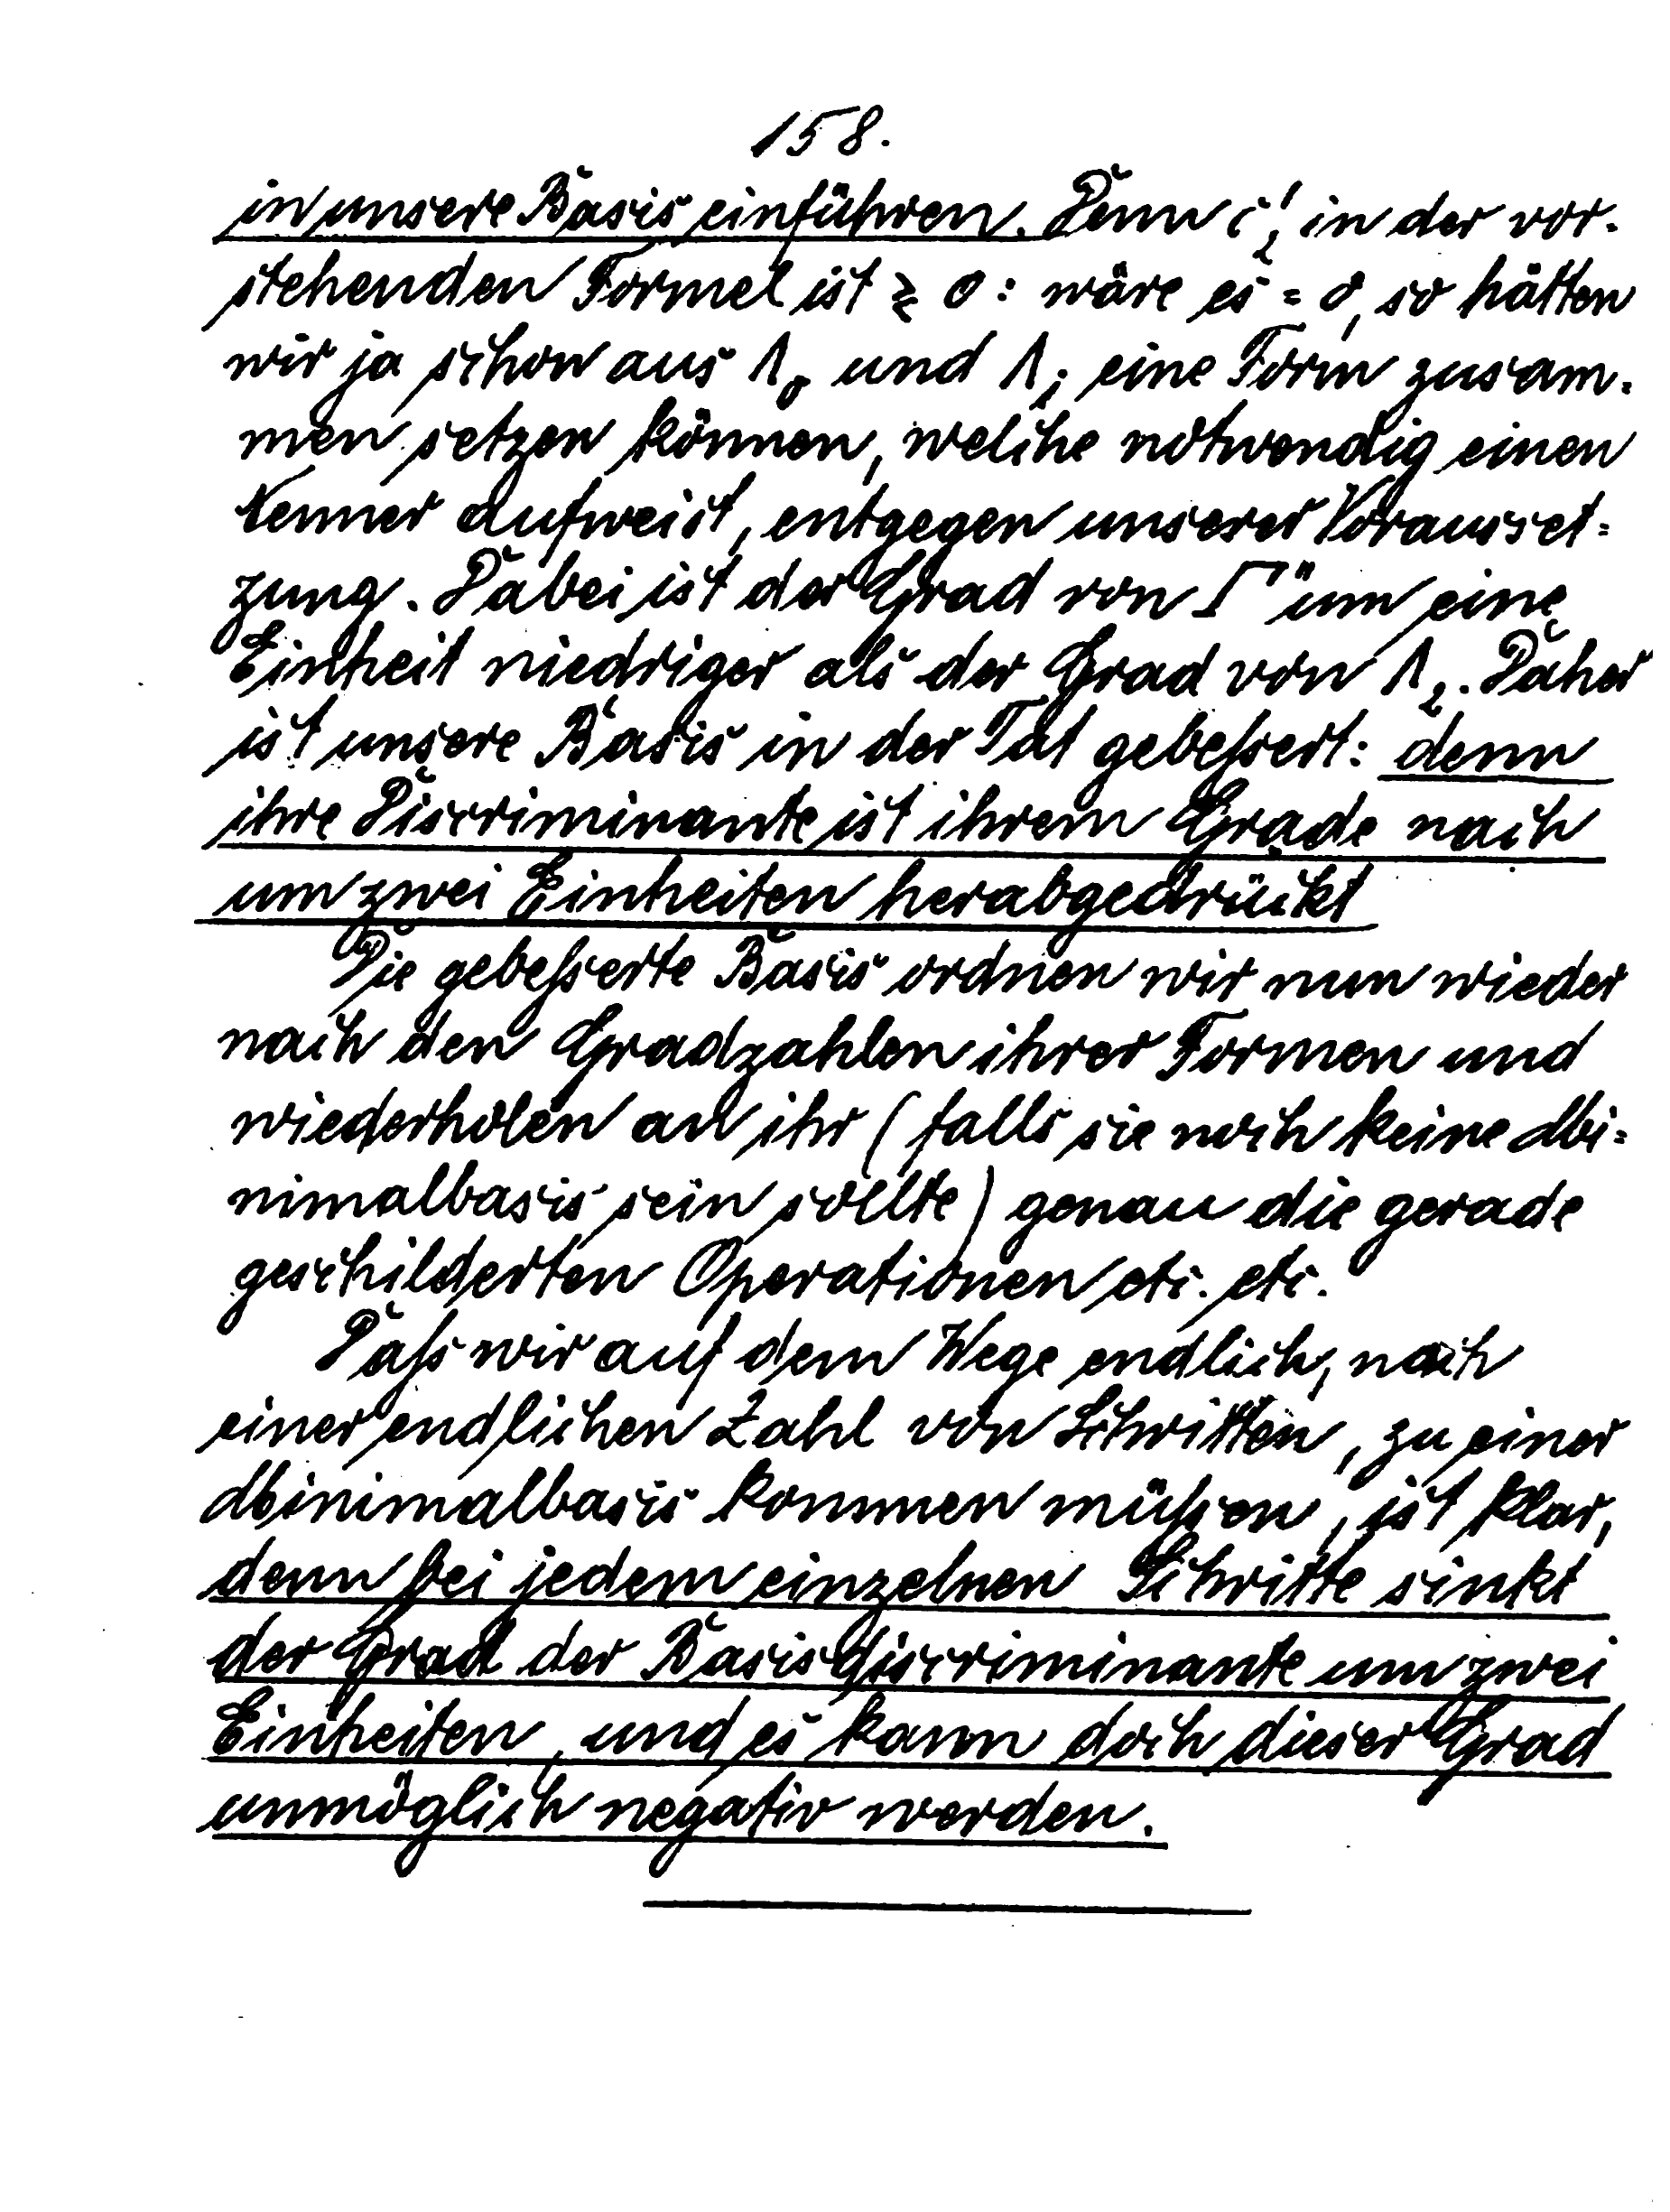 158.
in unsere Basis einführen. Denn c₂' in der vor-
stehenden Formel ist ≷ 0: wäre es = 0, so hätten
wir ja schon aus Λ₀ und Λ₁ eine Form zusam-
men setzen können, welche notwendig einen
Nenner aufweist, entgegen unserer Vorausset-
zung. Dabei ist der Grad von Γ'' um eine
Einheit niedriger als der Grad von Λ₂. Daher
ist unsere Basis in der Tat gebeſsert: denn
ihre Discriminante ist ihrem Grade nach
um zwei Einheiten herabgedrückt
Die gebeſserte Basis ordnen wir nun wieder
nach den Gradzahlen ihrer Formen und
wiederholen an ihr (falls sie noch keine Mi-
nimalbasis sein sollte) genau die gerade
geschilderten Operationen etc. etc.
Daſs wir auf dem Wege endlich, nach
einer endlichen Zahl von Schritten, zu einer
Minimalbasis kommen müſsen, ist klar,
denn bei jedem einzelnen Schritte sinkt
der Grad der Basisdiscriminante um zwei
Einheiten, und es kann doch dieser Grad
unmöglich negativ werden.